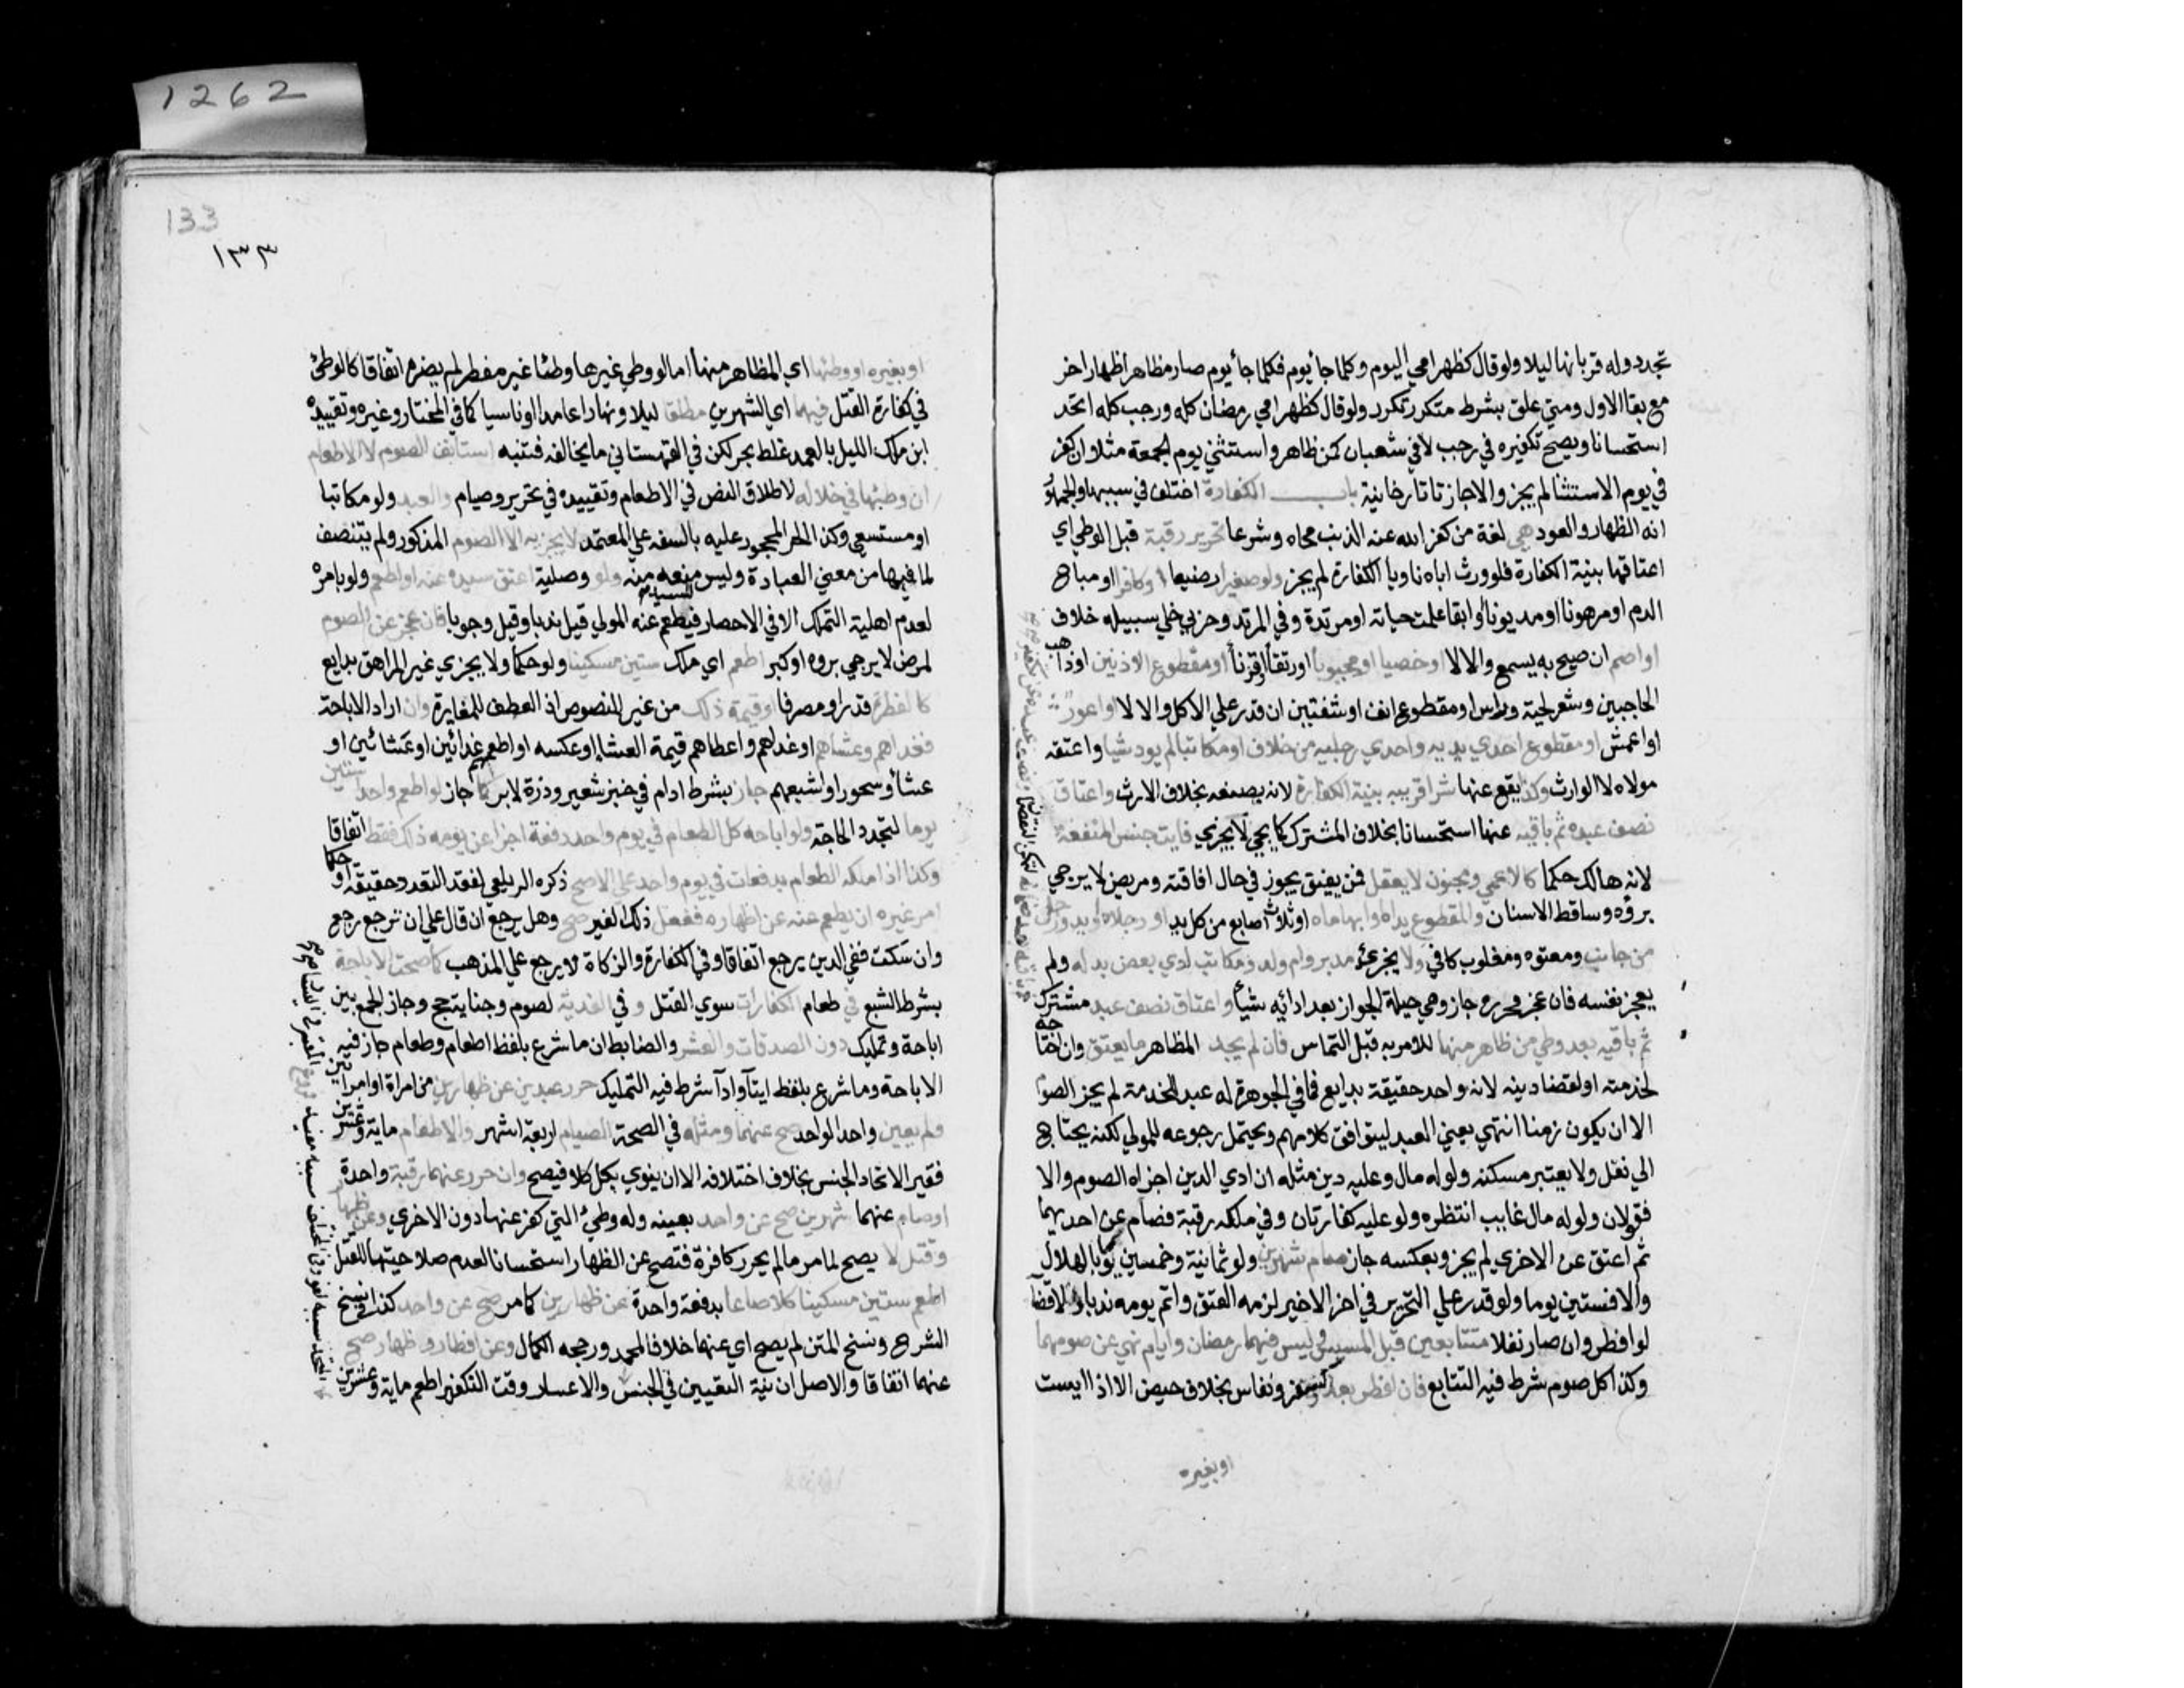 تجدد وله قربانها ليلا ولو قال كظهر امي اليوم وكلما جا يوم فكلما جا يوم صار مظاهرا ظهارا اخر
مع بقا الاول ومتي علق بشرط متكرر تكرر ولو قال كظهر امي رمضان كله ورجب كله اتحد
استحسانا ويصح تكفيره في رجب لا في شعبان كمن ظاهر واستثني يوم الجمعة مثلا وان كفر
في يوم الاستثنا لم يجز والا جاز تاتارخانية باب الكفارة اختلف في سببها والجمهور
انه الظهار والعود هي لغة من كفر الله عنه الذنب محاه وشرعا تحرير رقبة قبل الوطي اي
اعتاقها بنية الكفارة فلو ورث اباه ناويا الكفارة لم يجز ولو صغيرا رضيعا او كافرا او مباح
الدم او مرهونا او مديونا او ابقا علمت حياته او مرتدة وفي المرتد وحربي خلي سبيله خلاف
او اصم ان صيح به يسمع والا لا او خصيا او مجبوبا او رتقا او قرنا او مقطوع الاذنين او ذاهب
الحاجبين وشعر لحية وراس او مقطوع انف او شفتين ان قدر علي الاكل والا لا او اعور
او اعمش او مقطوع احدي يديه واحدي رجليه من خلاف او مكاتبا لم يود شيا واعتقه
مولاه لا الوارث وكذا يقع عنها شرا قريبه بنية الكفارة لانه بصنعه بخلاف الارث واعتاق
نصف عبده ثم باقيه عنها استحسانا بخلاف المشترك كما يجي لا يجزي فايت جنس المنفعة
لانه هالك حكما كالاعمي ومجنون لا يعقل فمن يفيق يجوز في حال افاقته ومريض لا يرجي
برؤه وساقط الاسنان والمقطوع يداه او ابهاماه او ثلاث اصابع من كل يد او رجلاه او يد ورجل
من جانب ومعتوه ومغلوب كافي ولا يجزئ مدبر وام ولد ومكاتب ادي بعض بدله ولم
يعجز نفسه فان عجز فحرره جاز وهي حيلة الجواز بعد ادائه شيأ واعتاق نصف عبد مشترك
ثم باقيه بعد وطي من ظاهر منها للامر به قبل التماس فان لم يجد المظاهر ما يعتق وان احتاجه
لخدمته او لقضا دينه لانه واحد حقيقة بدايع فما في الجوهرة له عبد للخدمة لم يجز الصوم
الا ان يكون زمنا انتهي يعني العبد ليتوافق كلامهم ويحتمل رجوعه للمولي لكنه يحتاج
الي نقل ولا يعتبر مسكنه ولو له مال وعليه دين مثله ان ادي الدين اجزاه الصوم والا
فقولان ولو له مال غايب انتظره ولو عليه كفارتان وفي ملكه رقبة فصام عن احديهما
ثم اعتق عن الاخري لم يجز وبعكسه جاز صام شهرين ولو ثمانية وخمسين يوما بالهلال
والا فستين يوما ولو قدر علي التحرير في اخر الاخير لزمه العتق واتم يومه ندبا ولا قضا
لو افطر وان صار نفلا متتابعين قبل المسيس ليس فيهما رمضان وايام نهي عن صومهما
وكذا كل صوم شرط فيه التتابع فان افطر بعذر كسفر ونفاس بخلاف حيض الا اذا ايست
او بغيره
1262
133
١٣٣
او بغيره او وطئها اي المظاهر منها اما لو وطي غيرها وطئا غير مفطر لم يضره اتفاقا كالوطئ
في كفارة القتل فيهما اي الشهرين مطلقا ليلا ونهارا عامدا او ناسيا كما في المختار وغيره وتقييده
ابن ملك الليل بالعمد غلط بحر لكن في القهستاني ما يخالفه فتنبه استانف الصوم لا الاطعام
ان وطئها في خلاله لاطلاق النص في الاطعام وتقييده في تحرير وصيام والعبد ولو مكاتبا
او مستسعي وكذا الحر المحجور عليه بالسفه علي المعتمد لا يجزيه الا الصوم المذكور ولم يتنصف
لما فيها من معني العبادة وليس للسيد منعه منه ولو وصلية اعتق سيده عنه او اطعم ولو بامره
لعدم اهلية التملك الا في الاحصار فيطعم عنه المولي قيل ندبا وقيل وجوبا فان عجز عن الصوم
لمرض لا يرجي بروه او كبر اطعم اي ملك ستين مسكينا ولو حكما ولا يجزي غير المراهق بدايع
كالفطرة قدرا ومصرفا او قيمة ذلك من غير المنصوص اذ العطف للمغايرة وان اراد الاباحة
فغداهم وعشاهم او غداهم واعطاهم قيمة العشا او عكسه او اطعمهم غدائين او عشائين او
عشا وسحورا واشبعهم جاز بشرط ادام في خبز شعير وذرة لا بر كما جاز لو اطعم واحدا ستين
يوما لتجدد الحاجة ولو اباحه كل الطعام في يوم واحد دفعة اجزا عن يومه ذلك فقط اتفاقا
وكذا اذا ملكه الطعام بدفعات في يوم واحد علي الاصح ذكره الزيلعي لفقد التعدد حقيقة او حكما
امر غيره ان يطعم عنه عن ظهاره ففعل ذلك الغير صح وهل يرجع ان قال علي ان ترجع رجع
وان سكت ففي الدين يرجع اتفاقا وفي الكفارة والزكاة لا يرجع علي المذهب كما صحت الاباحة
بشرط الشبع في طعام الكفارات سوي القتل وفي الفدية لصوم وجناية حج وجاز الجمع بين
اباحة وتمليك دون الصدقات والعشر والضابط ان ما شرع بلفظ اطعام وطعام جاز فيه
الاباحة وما شرع بلفظ ايتآ وادآ شرط فيه التمليك حرر عبدين عن ظهارين من امراة او امراتين
ولم يعين واحدا لواحد صح عنهما ومثله في الصحة الصيام اربعة اشهر والاطعام ماية وعشرين
فقير الاتحاد الجنس بخلاف اختلافه الا ان ينوي بكل كلا فيصح وان حرر عنهما رقبة واحدة
او صام عنهما شهرين صح عن واحد بعينه وله وطئ التي كفر عنها دون الاخري وعن ظهار
وقتل لا يصح لما مر ما لم يحرر كافرة فتصح عن الظهار استحسانا لعدم صلاحيتها للقتل
اطعم ستين مسكينا كلا صاعا بدفعة واحدة عن ظهارين كما مر صح عن واحد كذا في نسخ
الشرح ونسخ المتن لم يصح اي عنهما خلافا لمحمد ورجحه الكمال وعن افطار وظهار صح
عنهما اتفاقا والاصل ان نية التعيين في الجنس والاعسار وقت التكفير اطعم ماية وعشرين